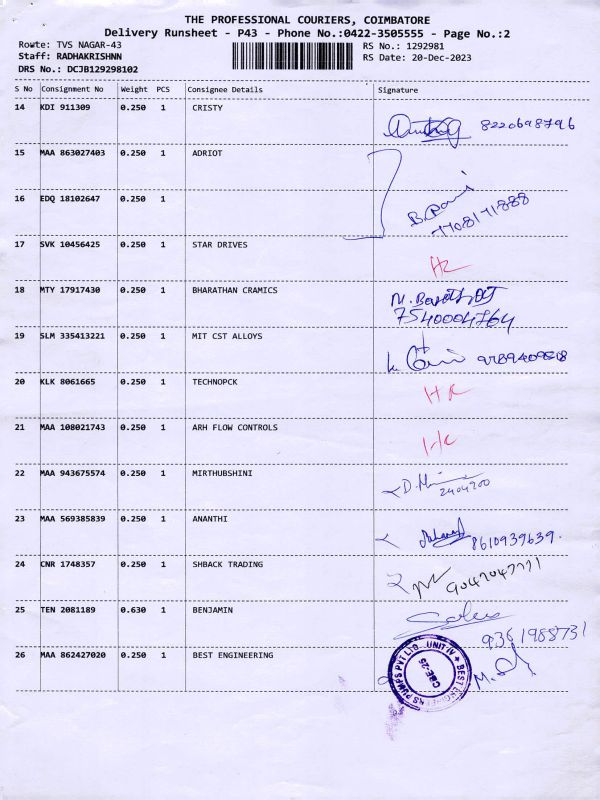 THE PROFESSIONAL COURIERS, COIMBATORE
Delivery Runsheet - P43 - Phone No.:0422-3505555 - Page No.:2
Route: TVS NAGAR-43
Staff: RADHAKRISHNN
DRS No.: DCJB129298102
RS No.: 1292981
RS Date: 20-Dec-2023
S No Consignment No Weight PCS Consignee Details Signature
14 KDI 911309 0.250 1 CRISTY 8220698796
15 MAA 863027403 0.250 1 ADRIOT
16 EDQ 18102647 0.250 1 7708171888
17 SVK 10456425 0.250 1 STAR DRIVES
18 MTY 17917430 0.250 1 BHARATHAN CRAMICS
7540004764
19 SLM 335413221 0.250 1 MIT CST ALLOYS
20 KLK 8061665 0.250 1 TECHNOPCK HR
21 MAA 108021743 0.250 1 ARH FLOW CONTROLS
22 MAA 943675574 0.250 1 MIRTHUBSHINI
23 MAA 569385839 0.250 1 ANANTHI 8610939639.
24 CNR 1748357 0.250 1 SHBACK TRADING
25 TEN 2081189 0.630 1 BENJAMIN
9361988731
26 MAA 862427020 0.250 1 BEST ENGINEERING
PUMPS PVT LTD. UNIT IV ★ BEST ENGINEERS
CBE-25